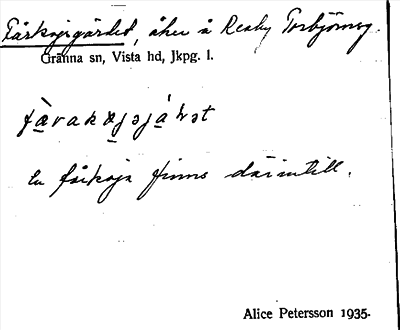 Fårkojegärdet, åker å Reaby Torbjörnsg.
Gränna sn, Vista hd, Jkpg. l.
En fårkoja finns därintill.
Alice Petersson 1935.